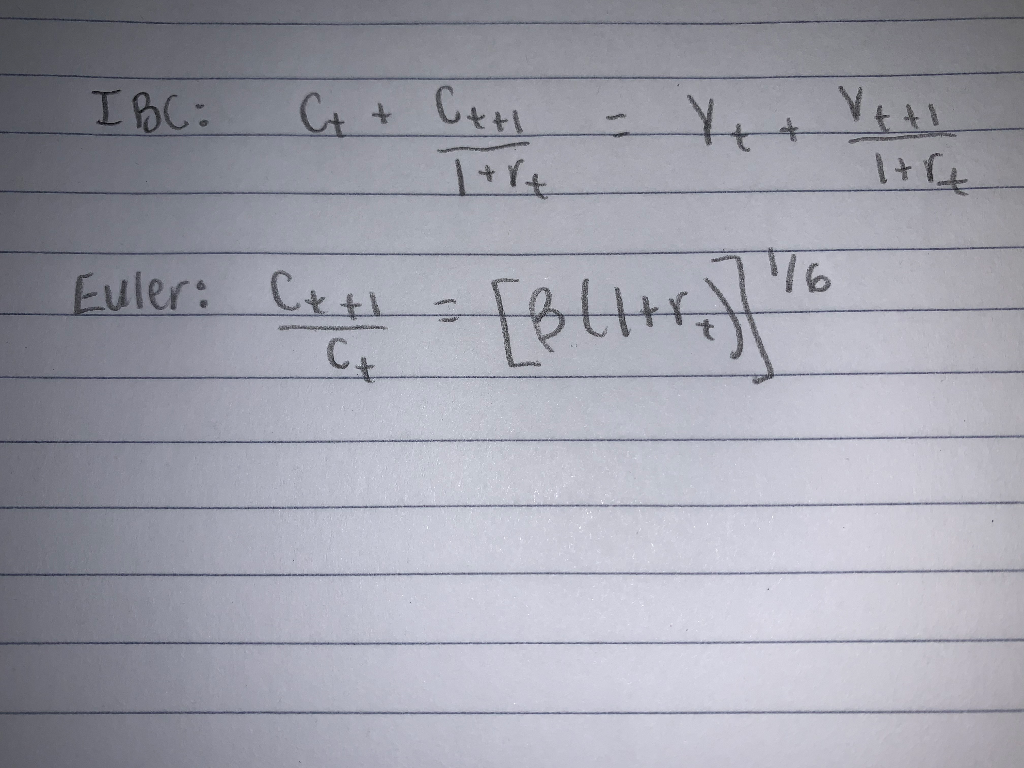 IBC: C_t + C_{t+1}/(1+r_t) = Y_t + Y_{t+1}/(1+r_t)
Euler: C_{t+1}/C_t = [β(1+r_t)]^{1/6}